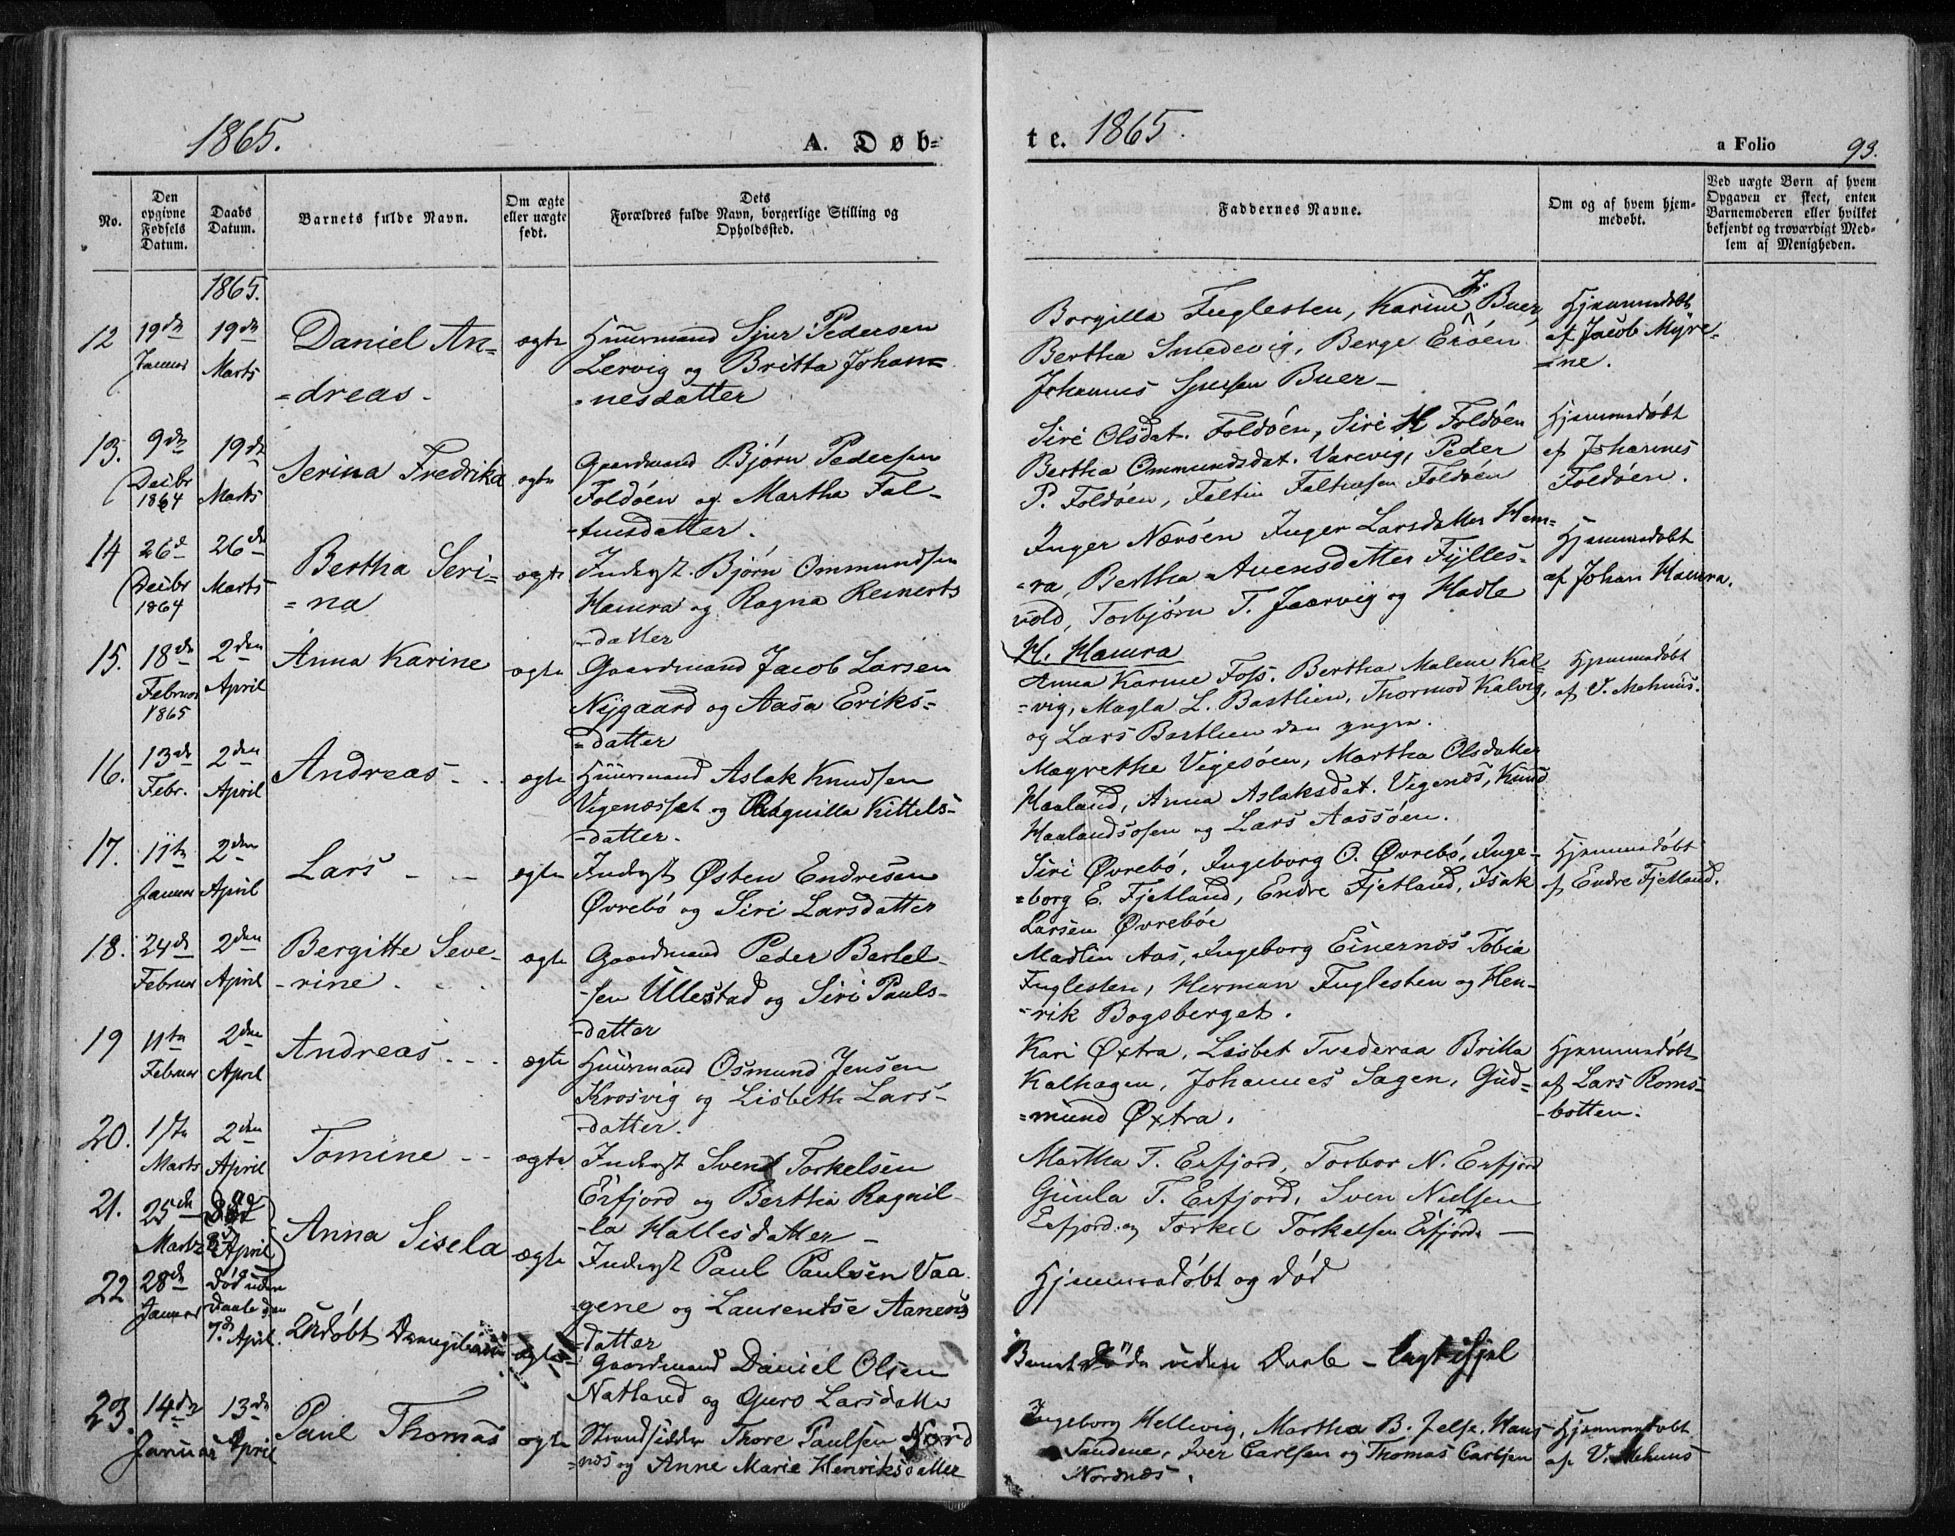 1865.
A. Døb-
te. 1865.
a Folio 93.
No.
Den opgivne Fødsels Datum.
Daabs Datum.
Barnets fulde Navn.
Om ægte eller uægte født.
Dets Forældres fulde Navn, borgerlige Stilling og Opholdssted.
Faddernes Navne.
Om og af hvem hjemmedøbt.
Ved uægte Børn af hvem Opgaven er skeet, enten Barnemoderen eller hvilket bekjendt og troværdigt Medlem af Menigheden.
1865.
12 19de Januar 19de Marts
Daniel An-
=dreas.
ægte
Huusmand Sjur Pedersen
Lervig og Britta Johan=
=nesdatter
Borgilla Fuglesten, Karine J. Buer,
Bertha Smedevig, Berge Erøen
Johannes Sjursen Buer
Hjemmedøbt
af Jacob Myre-
=ne.
13. 9de Decbr 1864 19de Marts
Serina Fredrika
ægte
Gaardmand Bjørn Pedersen
Foldøen og Martha Fal-
=tinsdatter.
Siri Olsdat. Foldøen, Siri H Foldøen
Bertha Ommundsdat. Varevig, Peder
P. Foldøen, Faltin Faltinsen Foldøen
Hjemmedøbt
af Johannes
Foldøen.
14 26de Decbr 1864 26de Marts
Bertha Seri-
=na
ægte
Inderst Bjørn Ommundsen
Hamra og Ragna Reinerts
-datter
Inger Nærøen Inger Larsdatter Ham=
=ra, Bertha Auensdatter Fylles-
vold, Torbjørn T. Jaarvig og Hadle
H. Hamra
Hjemmedøbt
af Johan Hamra.
15. 18de Februar 1865 2den April
Anna Karine
ægte
Gaardmand Jacob Larsen
Nygaard og Aasa Eriks-
=datter
Anna Karine Foss. Bertha Malene Kal-
=vig, Magla L. Bastlien, Thormod Kalvig,
og Lars Bastlien den yngre.
Hjemmedøbt
af V. Mehuus.
16. 13de Febr. 2den April
Andreas
ægte
Huusmand Aslak Knudsen
Vigenæsset og Ragnilla Kittels-
=datter.
Magrethe Vigesøen, Martha Olsdatter
Haaland, Anna Aslaksdat. Vigenæs, Knud
Haalandsosen og Lars Aassøen.
17. 11te Januar 2den April
Lars
ægte
Inderst Østen Endresen
Øvrebø og Siri Larsdatter
Siri Øvrebø, Ingeborg O. Øvrebø, Inge-
=borg E. Fjetland, Endre Fjetland, Isak
Larsen Øvrebøe
Hjemmedøbt
af Endre Fjetland.
18. 24de Februar 2den April
Bergitte Seve-
-rine.
ægte
Gaardmand Peder Bertel-
-sen Ullestad og Siri Pauls-
=datter
Madlen Aas, Ingeborg Einernæs Tobia
Fuglesten, Herman Fuglesten og Hen-
rik Bogsberget.
19 11te Februar 2den April
Andreas
ægte
Huusmand Osmund Jensen
Krosvig og Lisbeth Lars-
-datter.
Kari Øxtra, Lisbet Tvederaa Britta
Kalhagen, Johannes Sagen, Gud=
=mund Øxtra.
Hjemmedøbt
af Lars Roms-
-botten.
20. 17te Marts 2den April
Tomine
ægte
Inderst Svend Torkelsen
Erfjord og Bertha Ragnil-
-la Hallesdatter
Martha T. Erfjord, Torbor N. Erfjord
Gunla T. Erfjord, Sven Nielsen
Erfjord og Torkel Torkelsen Erfjord
21. 25de Marts April
Anna Sisela
ægte
Inderst Paul Paulsen Vaa-
gene og Laurentse Aanens
datter
Hjemmedøbt og død
22 28de Januar Død uden Daab den 7de April
Udøbt Drengebarn
ægte
Gaardmand Daniel Olsen
Natland og Guro Larsdatter
Barnet døde uden Daab –
23. 14de Januar 13de April
Paul Thomas
ægte
Strandsidder Thore Paulsen Nord
=næs og Anne Marie Henriksdatter
Ingeborg Hellevig, Martha B. Jelse, Hans
Sandene, Iver Carlsen og Thomas Carlsen
Nordnæs.
Hjemmedøbt
af V. Mehuus